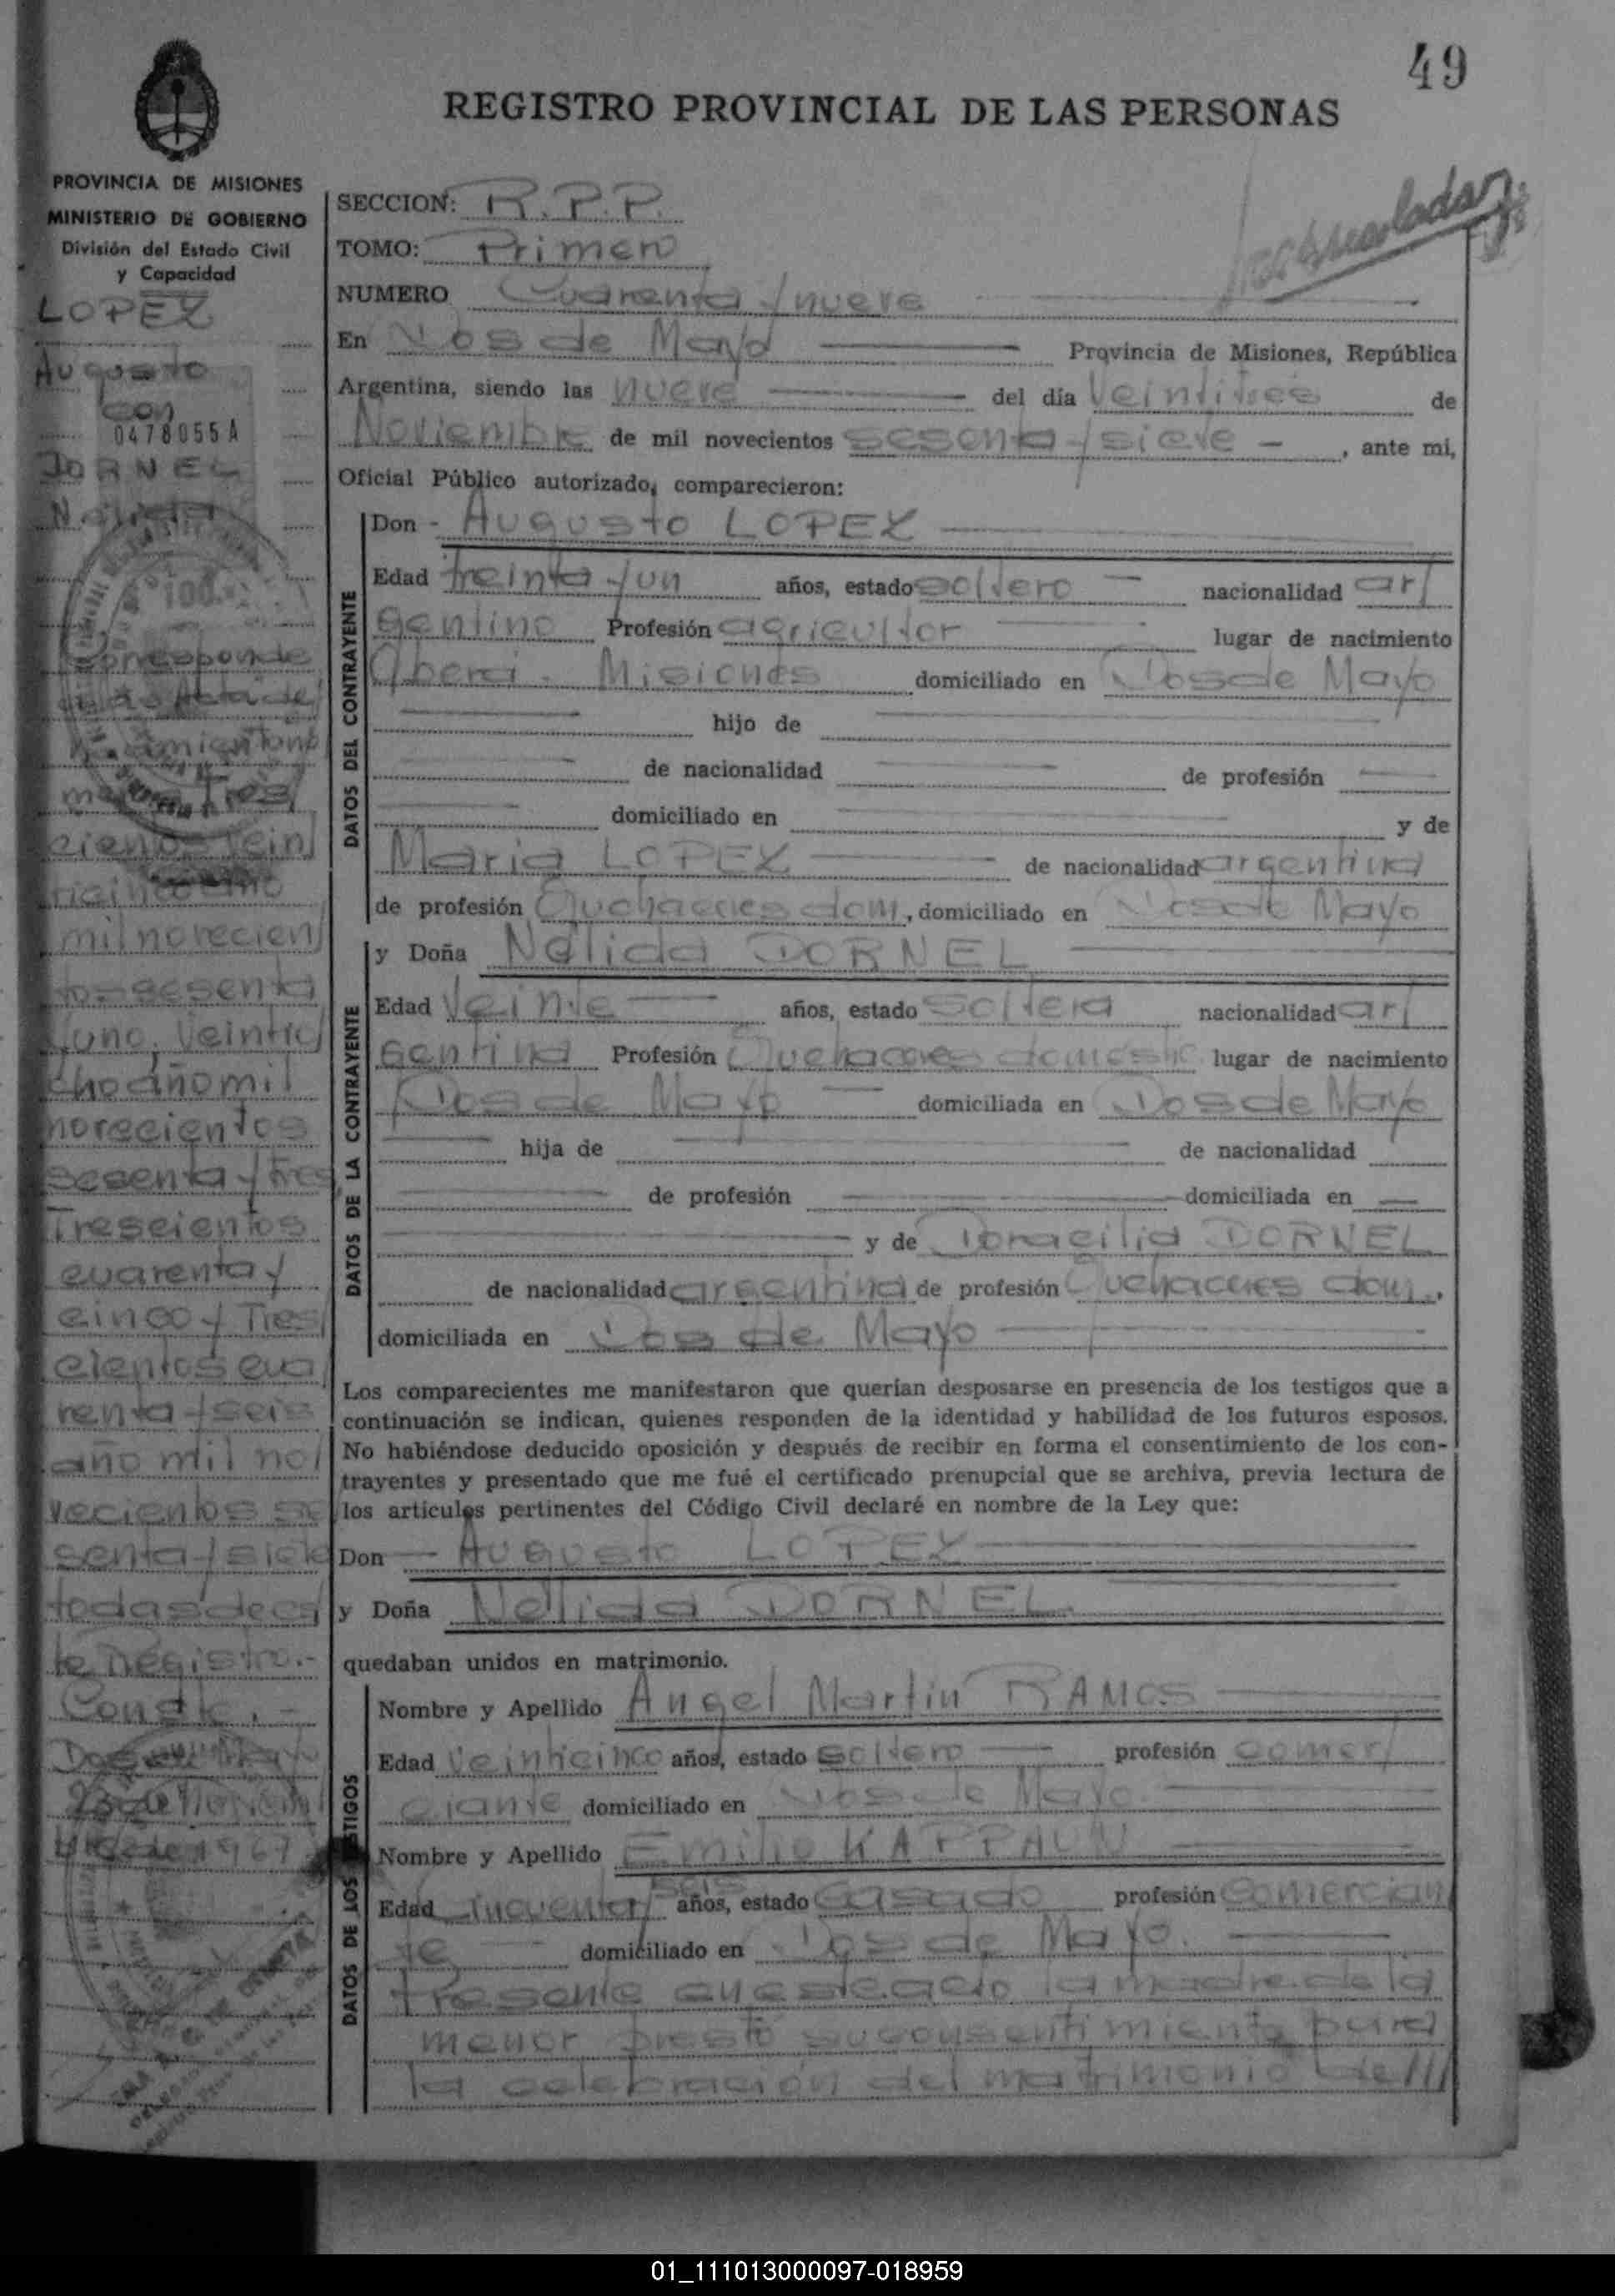 49
REGISTRO PROVINCIAL DE LAS PERSONAS
PROVINCIA DE MISIONES
MINISTERIO DE GOBIERNO
División del Estado Civil
y Capacidad
LOPEZ
Augusto
con
0478055 A
DORNEL
Nelida
Corresponde
mil novecien/
tos sesenta
/uno, Veintio/
cho año mil
novecientos
sesenta y tres
Trescientos
cuarenta y
cinco y Tres/
cientos cua/
renta y seis
año mil no/
vecientos se
senta y siete
todas de es/
te Registro.-
Conste.-
Dos de Mayo
23 de Noviem/
bre de 1967
SECCION: R.P.P.
TOMO: Primero
NUMERO Cuarenta y nueve
En Dos de Mayo Provincia de Misiones, República
Argentina, siendo las nueve del día Veintitres de
Noviembre de mil novecientos sesenta y siete - , ante mi,
Oficial Público autorizado, comparecieron:
DATOS DEL CONTRAYENTE
Don - Augusto LOPEZ
Edad treinta y un años, estado soltero nacionalidad ar/
gentino Profesión agricultor lugar de nacimiento
Oberá - Misiones domiciliado en Dos de Mayo
hijo de
de nacionalidad de profesión
domiciliado en y de
Maria LOPEZ de nacionalidad argentina
de profesión Quehaceres dom, domiciliado en Dos de Mayo
DATOS DE LA CONTRAYENTE
y Doña Nélida DORNEL
Edad Veinte años, estado soltera nacionalidad ar/
gentina Profesión Quehaceres domestic lugar de nacimiento
Dos de Mayo domiciliada en Dos de Mayo
hija de de nacionalidad
de profesión domiciliada en
y de DORNEL
de nacionalidad argentina de profesión Quehaceres dom.,
domiciliada en Dos de Mayo
Los comparecientes me manifestaron que querían desposarse en presencia de los testigos que a
continuación se indican, quienes responden de la identidad y habilidad de los futuros esposos.
No habiéndose deducido oposición y después de recibir en forma el consentimiento de los con-
trayentes y presentado que me fué el certificado prenupcial que se archiva, previa lectura de
los articules pertinentes del Código Civil declaré en nombre de la Ley que:
Don Augusto LOPEZ
y Doña Nélida DORNEL
quedaban unidos en matrimonio.
DATOS DE LOS TESTIGOS
Nombre y Apellido Angel Martin RAMOS
Edad Veinticinco años, estado soltero profesión comer/
ciante domiciliado en Dos de Mayo
Nombre y Apellido Emilio KAPPAUN
seis
Edad Cincuenta/ años, estado Casado profesión Comercian
te domiciliado en Dos de Mayo.
Presente en este acto la madre de la
menor presto su consentimiento para
la celebración del matrimonio de///
01_111013000097-018959